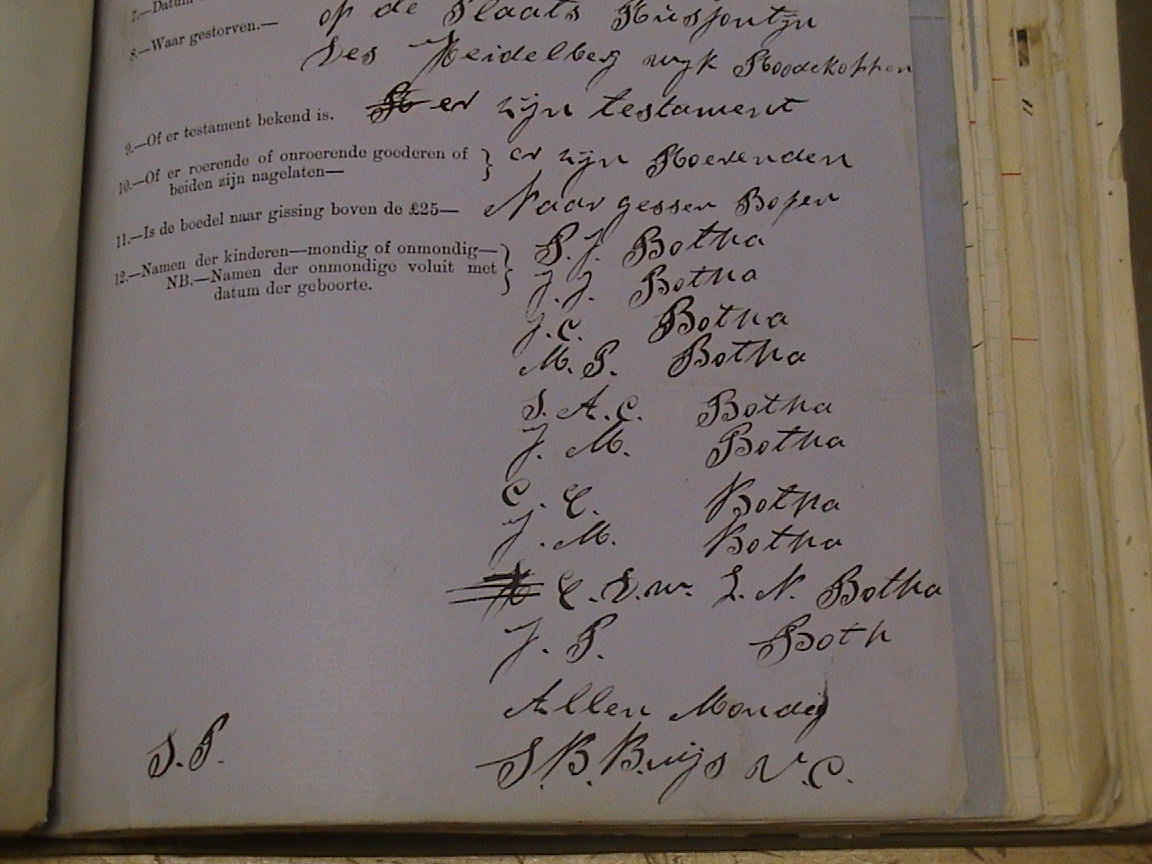 7.—Datum
8.—Waar gestorven.— op de Plaats
Des Heidelberg wyk Roodekoppen
9.—Of er testament bekend is. er zijn testament
10.—Of er roerende of onroerende goederen of
beiden zijn nagelaten— er zijn Roerenden
11.—Is de boedel naar gissing boven de £25— Naar gessen Bofen
12.—Namen der kinderen—mondig of onmondig— P. J. Botha
NB.—Namen der onmondige voluit met J. J. Botha
datum der geboorte.
J. C. Botha
M. P. Botha
S. A. C. Botha
J. M. Botha
C. E. Botha
J. M. Botha
Botha
J. P. Both
Allen Mondig
S. P. S. B. Buijs V. C.